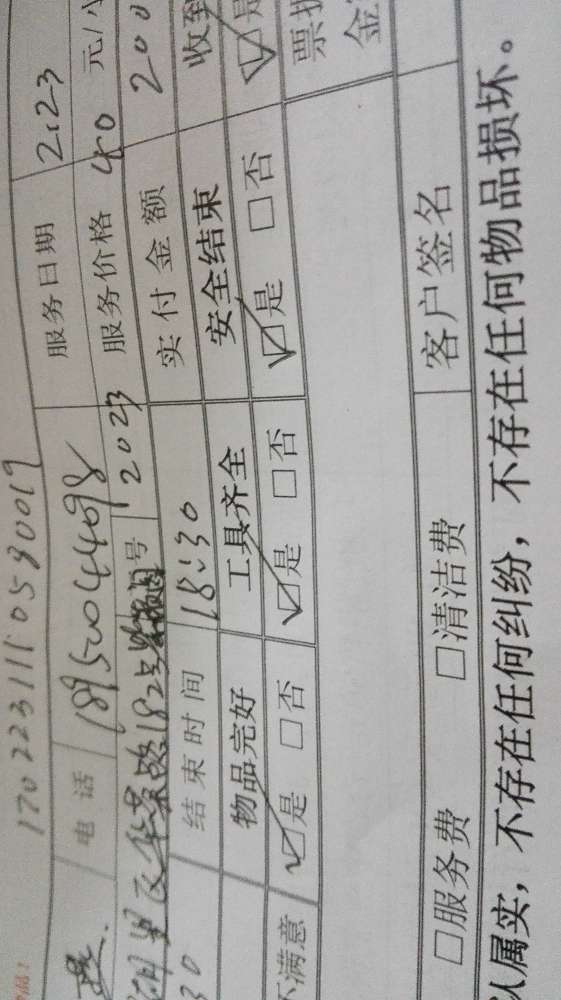 1702231110580019
电话 18950044098 服务日期 2.23
华景路182号 号 2023 服务价格 40 元/小
结束时间 18:30 实付金额 200
物品完好 工具齐全 安全结束 收到
☑是 □否 ☑是 □否 ☑是 □否 ☑是
不满意
票据
金
□服务费 □清洁费 客户签名
人属实，不存在任何纠纷，不存在任何物品损坏。